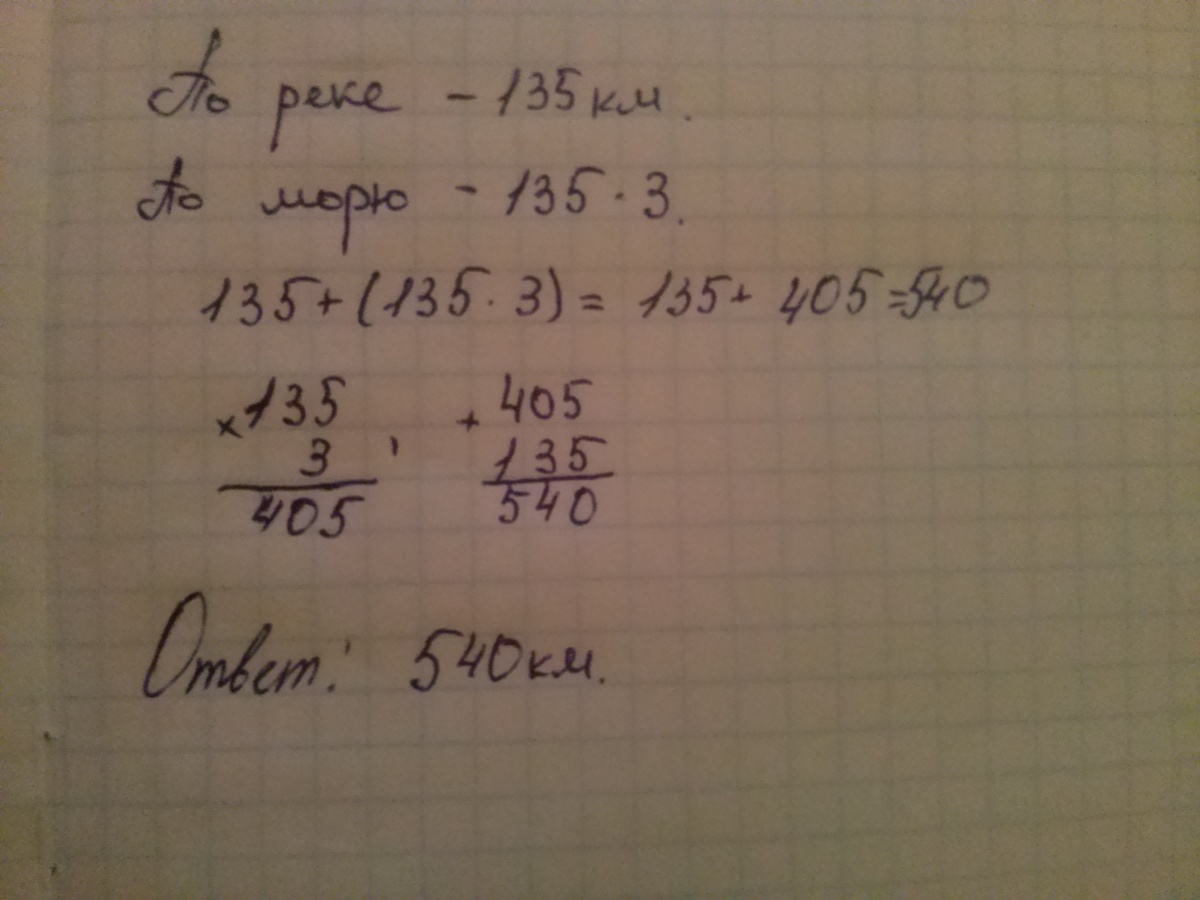 По реке - 135 км.
По морю - 135 · 3.
135 + (135 · 3) = 135 + 405 = 540
× 135 + 405
3 , 135
405 540
Ответ: 540 км.